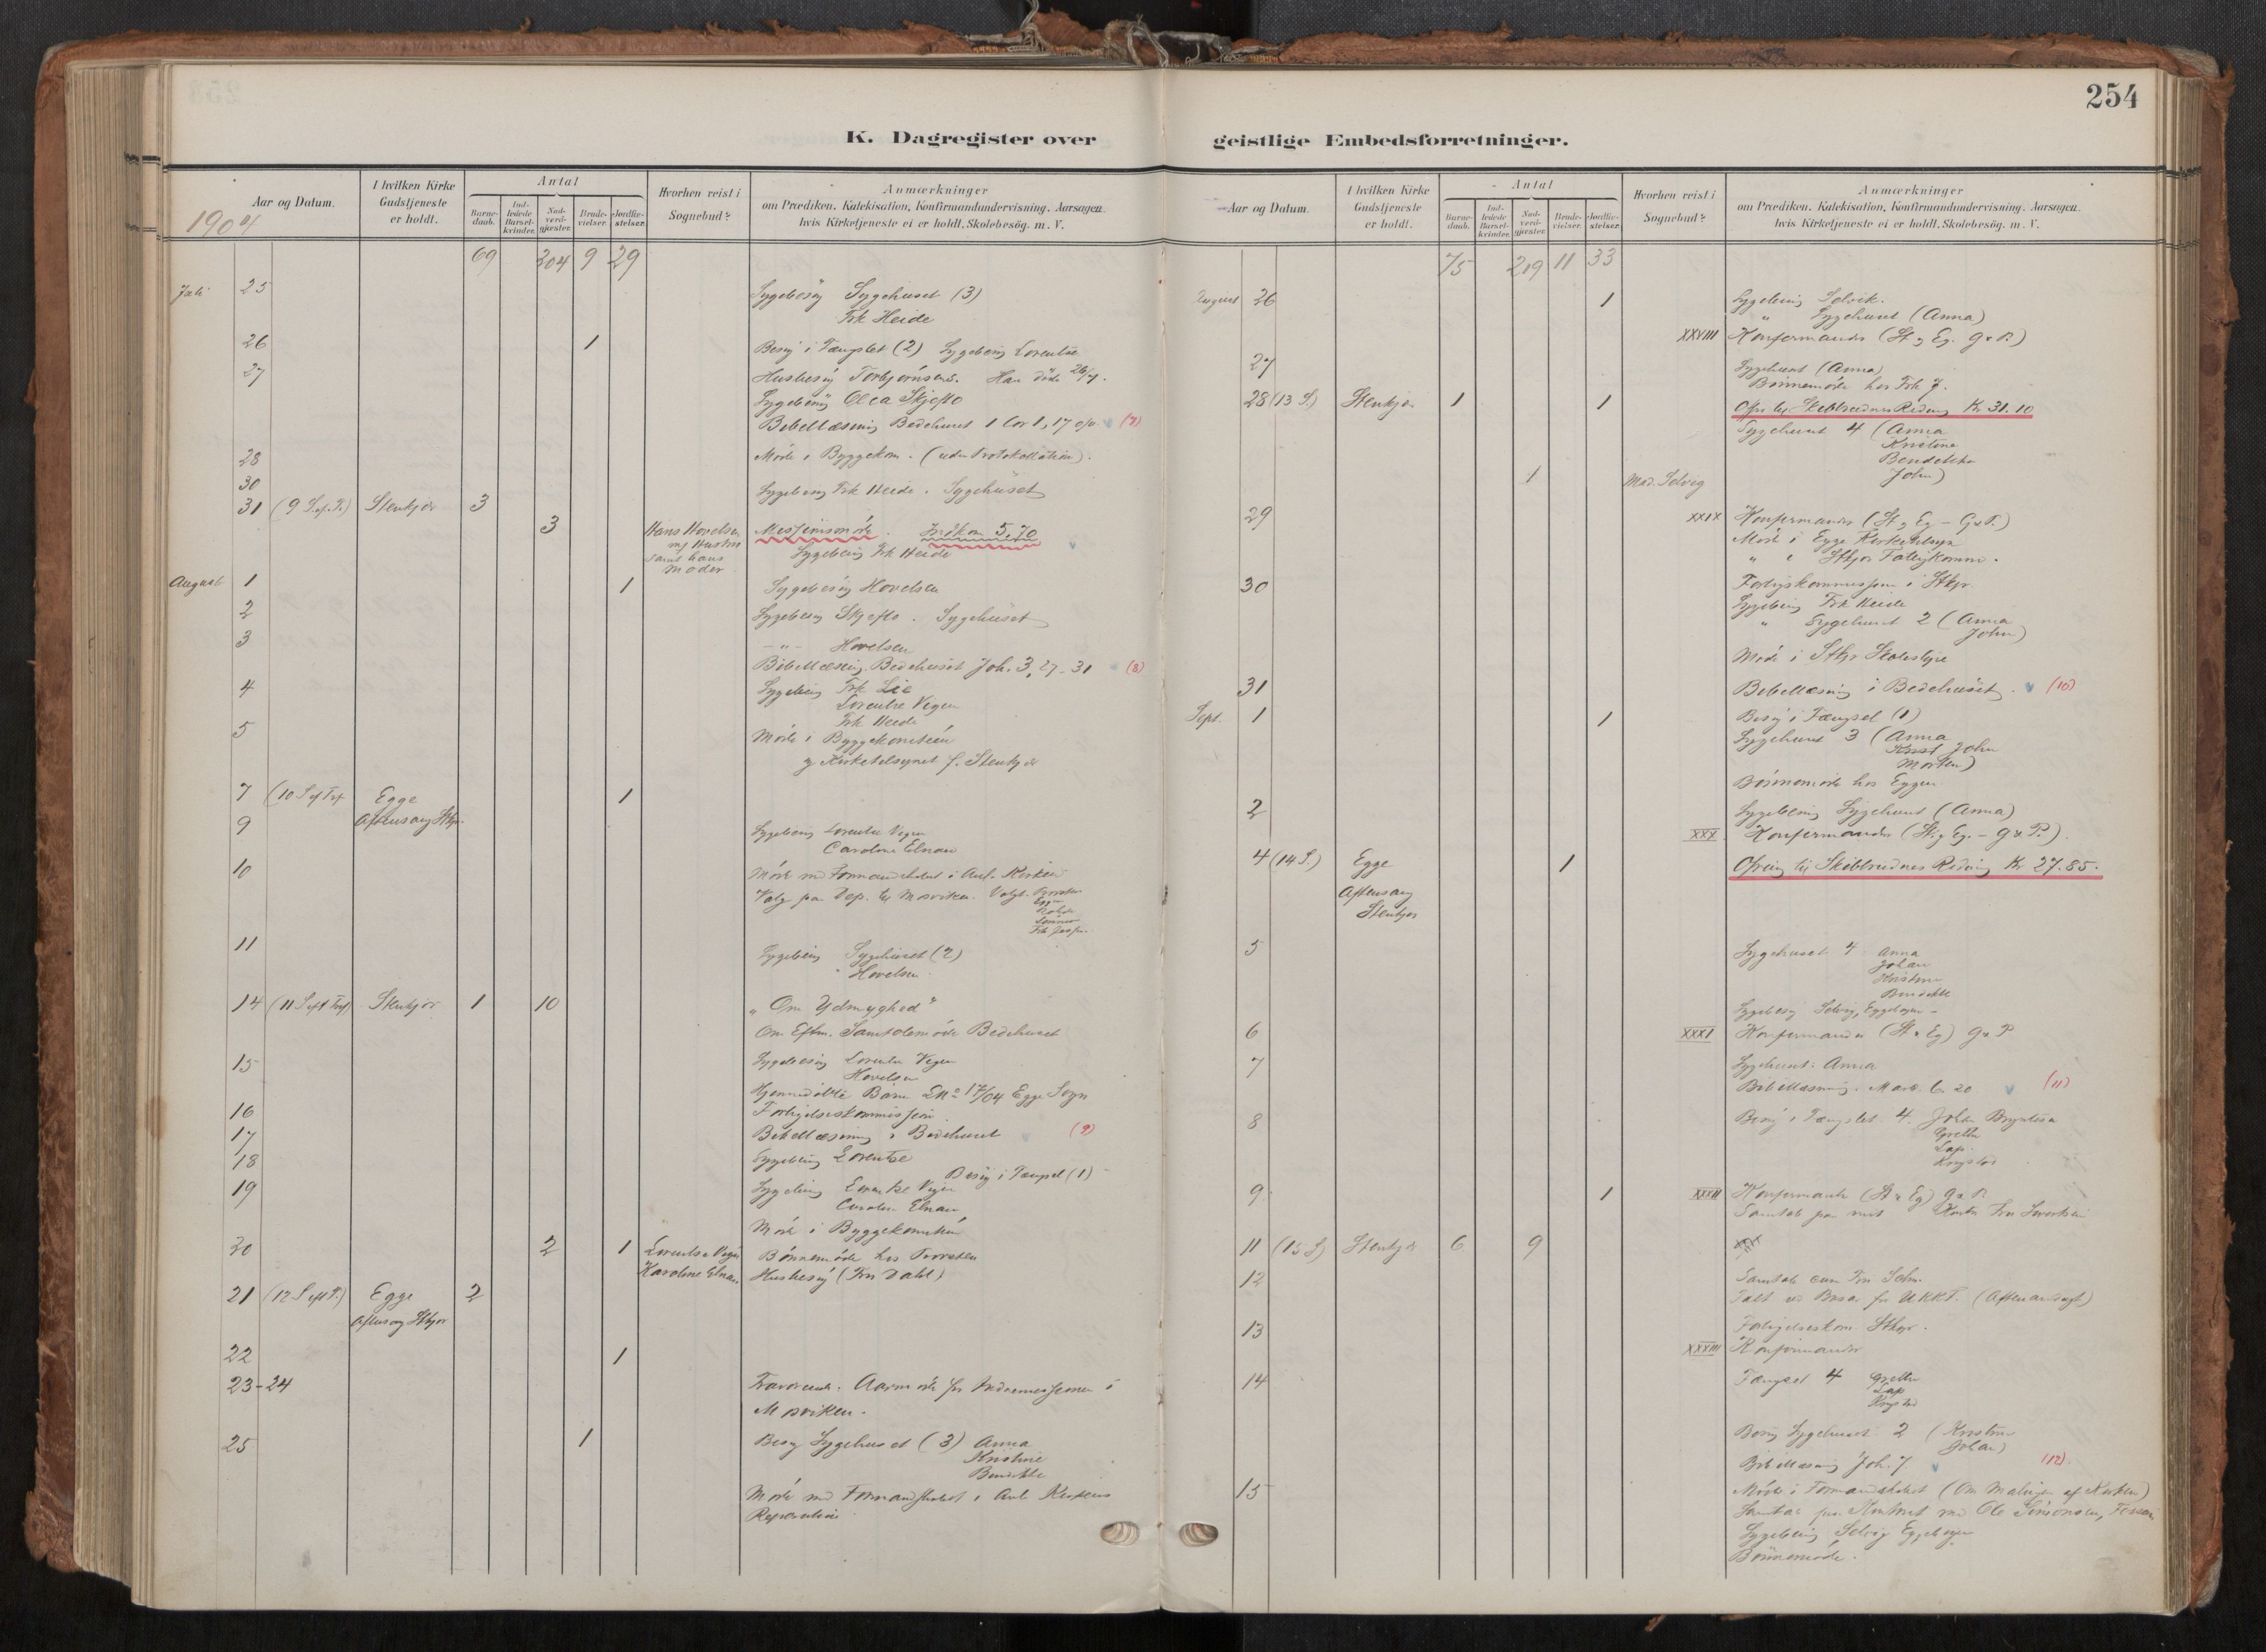 254
K. Dagregister over geistlige Embedsforretninger.
Aar og Datum.
I hvilken Kirke Gudstjeneste er holdt.
Antal
Barne-daab.
Ind-ledede Barsel-kvinder.
Nad-verd-gjester.
Brude-vielser.
Jordfæ-stelser.
Hvorhen reist i Sognebud?
Anmærkninger
om Prædiken, Katekisation, Konfirmandundervisning, Aarsagen,
hvis Kirketjeneste ei er holdt, Skolebesög. m. V.
1904
69 204 9 29
Juli 25 Sygebesög Sygehuset (3)
Frk Heide
26 1 Besög i Fængslet (2) Sygebesög Lorentse
27 Husbesög Torbjørnsens. Han døde 26/7.
Sygebesög Olea Skjefte
Bibellæsning Bedehuset 1 Cor 1, 17 (7)
28 Møde i Byggekom. (uden Protokollation).
30 Sygebesög Frk Heide. Sygehuset
31 (9 S.ef.T.) Stenkjær 3
3 Hans Hovelsen
m/ Hustru
samt hans
Moder
Missionsmøde. Indkom 5,70
Sygebesög Frk Heide
August 1 1 Sygebesög Hovelsen
2 Sygebesög Skjefte. Sygehuset
3 — " — Hovelsen
Bibellæsning. Bedehuset Joh. 3, 27-31 (8)
4 Sygebesög Frk Lie
Lorentse Vegen
Frk Heide
5 Møde i Byggekomiteén
og Kirketilsynet f. Stenkjær
7 (10 S ef Tref Egge 1
Aftensang Stkjr.
9 Sygebesög Lorentse Vegen
Caroline Elnan
10 Møde med Formandskabet i Anl. Kirken
Valg paa Dep. til Mosviken. Valgt.
11 Sygebesög Sygehuset (2)
" Hovelsen
14 (11 S eft Tref) Stenkjær 1 10 "Om Ydmyghed"
Om Eftm. Samtalemøde Bedehuset
15 Sygebesög Lorentse Vegen
Hovelsen
Hjemmedøbte Barn 17/04 Egge Sogn
16 Forligelseskommission
17 Bibellæsning i Bedehuset (9)
18 Sygebesög Lorentse
Besög i Fængsel (1)
19 Sygebesög Lorentse Vegen
Caroline Elnan
Møde i Byggekomiteén
20 2 1 Lorentse Vegen
Karoline Elnan
Bönnemøde hos
Husbesög (Fru Dahl)
21 (12 S eft T.) Egge 2
Aftensang Stkjær
22 1
23-24 Fraværende. Aarmøde for Indremissionen i
Mosviken.
25 1 Besög Sygehuset (3) Anna
Kristine
Bendikte
Møde med Formandskabet i Anl Kirkens
Reparation
Aar og Datum.
I hvilken Kirke Gudstjeneste er holdt.
Antal
Barne-daab.
Ind-ledede Barsel-kvinder.
Nad-verd-gjester.
Brude-vielser.
Jordfæ-stelser.
Hvorhen reist i Sognebud?
Anmærkninger
om Prædiken, Katekisation, Konfirmandundervisning, Aarsagen,
hvis Kirketjeneste ei er holdt, Skolebesög. m. V.
75 219 11 33
August 26 1 Sygebesög Selvik.
" Sygehuset (Anna)
XXVIII Konfirmander (St og Eg. G & P)
27 Sygehuset (Anna)
Bönnemøde hos Frk J.
28 (13 S.) Stenkjær 1 1 Ofr. til Skibbrudnes Redning Kr 31.10
Sygehuset 4 (Anna
Kristine
Bendikte
John)
1 Mad. Selvig
29 XXIX Konfirmander (St og Eg - G & P.)
Møde i Egge Kirketilsyn
" i Stkjær Fattigkomm.
30 Forligskommission i Stkjr.
Sygebesög Frk Heide
" Sygehuset 2 (Anna
John)
Møde i Stkjr Skolestyre
31 Bibellæsning i Bedehuset. (10)
Sept. 1 1 Besög i Fængsel (1)
Sygehuset 3 (Anna
Krist John
Morten)
Bönnemøde hos Eggen
2 Sygebesög Sygehuset (Anna)
XXX Konfirmander (St. og Eg. - G & P.)
4 (14 S.) Egge 1 Ofring til Skibbrudnes Redning Kr 27.85.
Aftensang
Stenkjær
5 Sygehuset 4 Anna
Johan
Kristine
Bendikte
Sygebesög Selvig, Eggebogen
6 XXXI Konfirmander (St & Eg) G & P
7 Sygehuset: Anna
Bibellæsning. Mark. 6 20 (11)
8 Besög i Fængslet. 4. Johan
Grethe
Lap.
9 1 XXXII Konfirmander (St & Eg) G & P.
Samtale paa mit Kontor Fru
11 (15 S) Stenkjær 6 9
12 Samtale cum Fru Schn.
Talt ved Basar for UKKF. (Aftenandagt)
13 Forligelseskom. Stkjr.
XXXIII Konfirmander
14 Fængsel 4 Grethe
Lap
Besög Sygehuset 2 (Kristine
Johan)
Bibellæsning Joh. 7 (12).
15 Møde i Formandskabet (Om Malingen af Kirken)
Samtale paa Kontoret med Ole Simonsen,
Sygebesög Selvig Eggebogen
Bönnemøde.